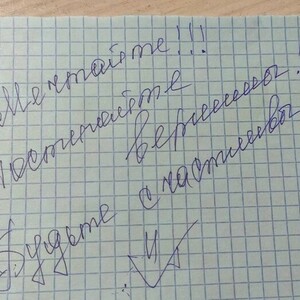 Мечтайте!!!
Достигайте
вершины.
Будьте счастливы